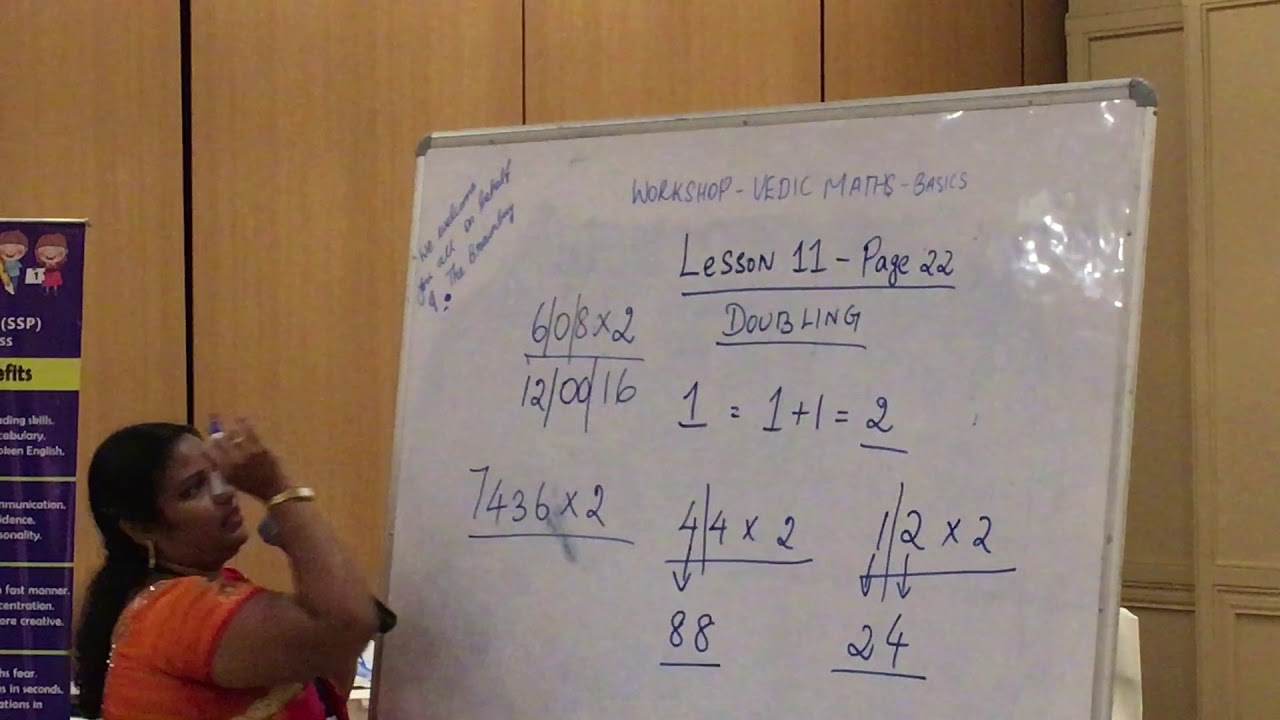 (SSP)
ss
efits
ding skills.
cabulary.
oken English.
mmunication.
idence.
sonality.
n fast manner.
centration.
ore creative.
hs fear.
s in seconds.
ations in
1
We welcome
you all on behalf
The
WORKSHOP - VEDIC MATHS - BASICS
LESSON 11 - Page 22
DOUBLING
6/0/8 x 2
12/00/16
1 = 1+1 = 2
7436 x 2
4/4 x 2
88
1/2 x 2
24